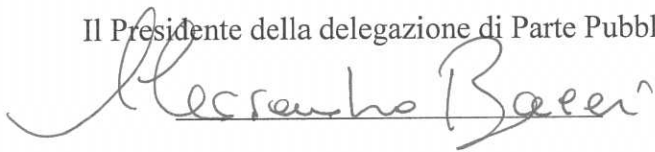 Il Presidente della delegazione di Parte Pubbl
Alessandro